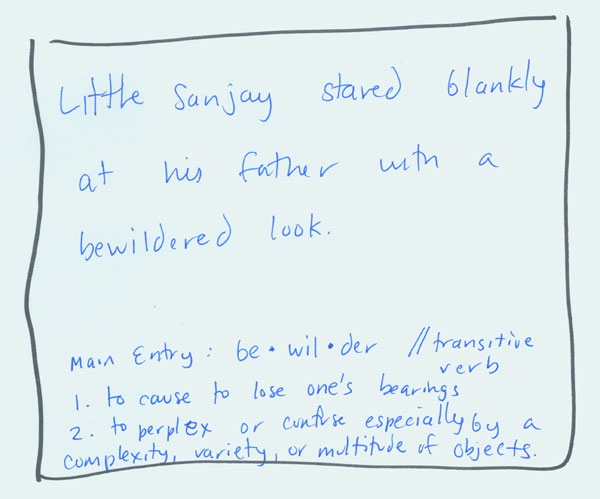 Little Sanjay stared blankly
at his father with a
bewildered look.
Main Entry: be•wil•der //transitive
verb
1. to cause to lose one's bearings
2. to perplex or confuse especially by a
complexity, variety, or multitude of objects.